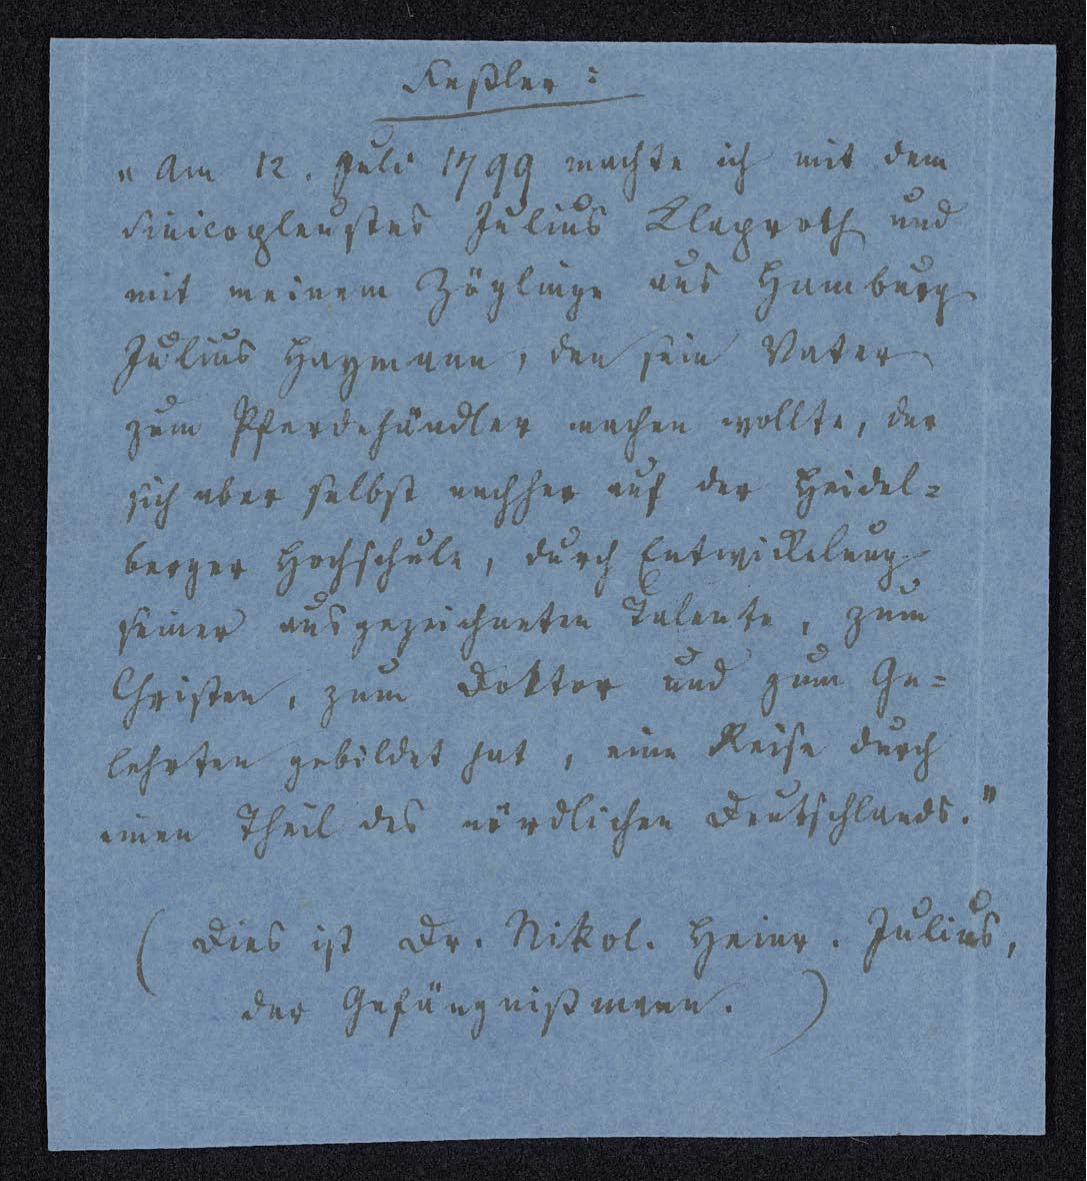 Keßler:
„Am 12. Juli 1799 machte ich mit dem
Sinicopleustes Julius Klaproth und
mit meinem Zöglinge aus Hamburg
Julius Haymann, den sein Vater
zum Pferdehändler machen wollte, der
sich aber selbst nachher auf der Heidel=
berger Hochschule, durch Entwickelung
seiner ausgezeichneten Talente, zum
Christen, zum Doktor und zum Ge=
lehrten gebildet hat, eine Reise durch
einen Theil des nördlichen Deutschlands."
(Dies ist Dr. Nikol. Heinr. Julius,
der Gefängnißmann.)